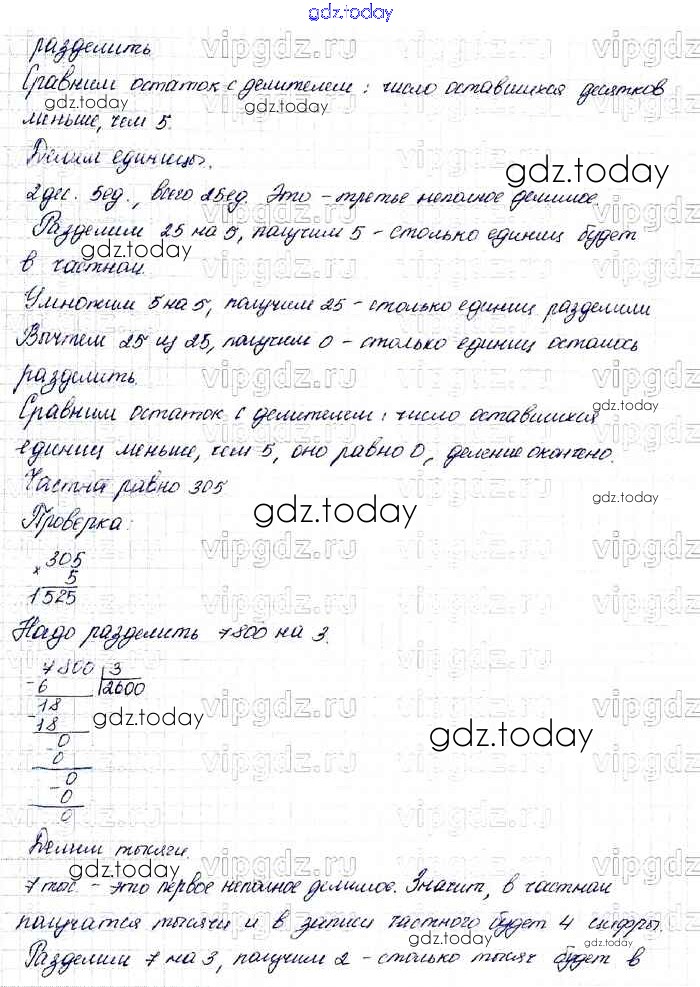 gdz.today
разделить.
Сравним остаток с делителем: число оставшихся десятков
меньше, чем 5.
Делим единицы.
2 дес. 5 ед., всего 25 ед. Это - третье неполное делимое.
Разделим 25 на 5, получим 5 - столько единиц будет
в частном.
Умножим 5 на 5, получим 25 - столько единиц разделили
Вычтем 25 из 25, получим 0 - столько единиц осталось
разделить.
Сравним остаток с делителем: число оставшихся
единиц меньше, чем 5, оно равно 0, деление окончено.
Частное равно 305
Проверка:
305
× 5
1525
Надо разделить 7800 на 3.
7800 3
- 6 2600
18
- 18
0
- 0
0
- 0
0
Делим тысячи.
7 тыс. - это первое неполное делимое. Значит, в частном
получатся тысячи и в записи частного будет 4 цифры.
Разделим 7 на 3, получим 2 - столько тысяч будет в